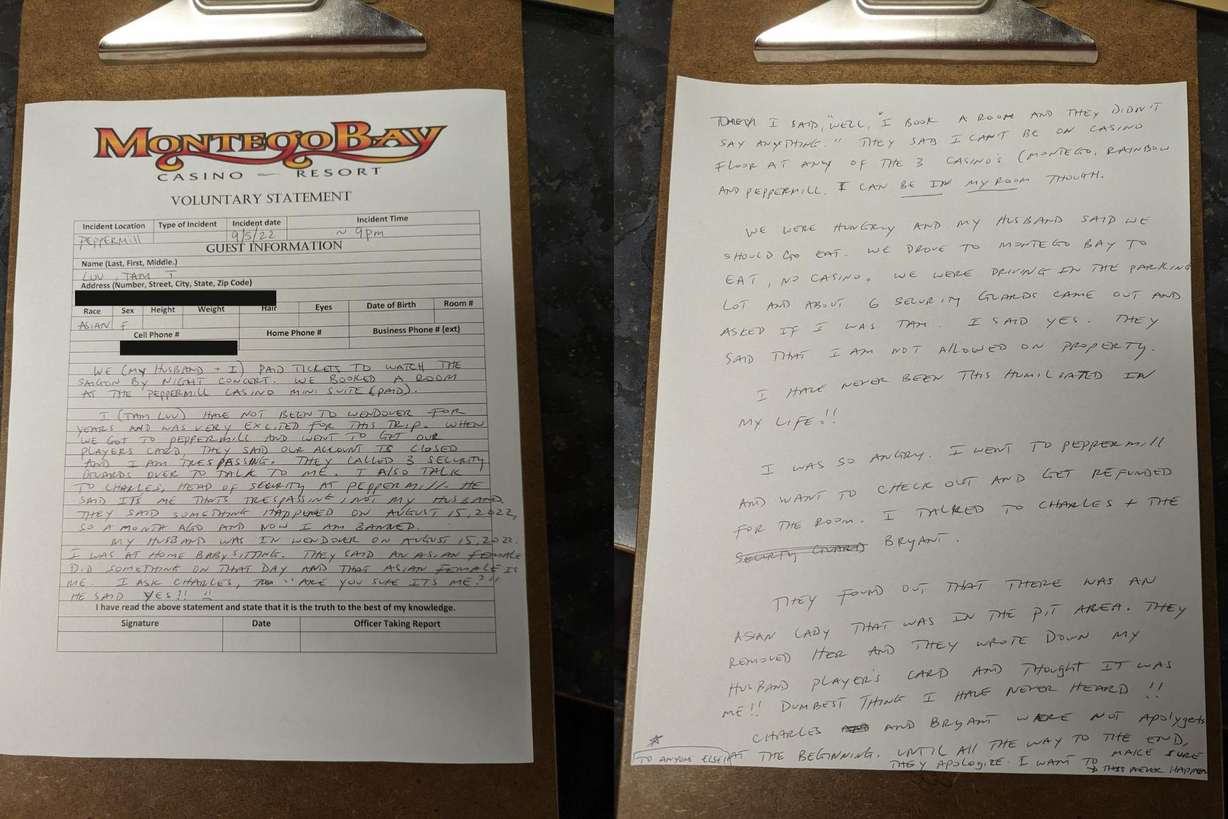 MONTEGOBAY
CASINO — RESORT
VOLUNTARY STATEMENT
Incident Location Type of Incident Incident date Incident Time
PEPPERMILL 9/5/22 ~ 9pm
GUEST INFORMATION
Name (Last, First, Middle.)
LUU, TAM T
Address (Number, Street, City, State, Zip Code)
Race Sex Height Weight Hair Eyes Date of Birth Room #
ASIAN F
Cell Phone # Home Phone # Business Phone # (ext)
WE (MY HUSBAND + I) PAID TICKETS TO WATCH THE
SAIGON BY NIGHT CONCERT. WE BOOKED A ROOM
AT THE PEPPERMILL CASINO MINI SUITE (PAID).
I (TAM LUU) HAVE NOT BEEN TO WENDOVER FOR
YEARS AND WAS VERY EXCITED FOR THIS TRIP. WHEN
WE GOT TO PEPPERMILL AND WENT TO GET OUR
PLAYERS CARD, THEY SAID OUR ACCOUNT IS CLOSED
AND I AM TRESPASSING. THEY CALLED 3 SECURITY
GUARDS OVER TO TALK TO ME. I ALSO TALK
TO CHARLES, HEAD OF SECURITY AT PEPPERMILL. HE
SAID ITS ME THATS TRESPASSING, NOT MY HUSBAND.
THEY SAID SOMETHING HAPPENED ON AUGUST 15, 2022,
SO A MONTH AGO AND NOW I AM BANNED.
MY HUSBAND WAS IN WENDOVER ON AUGUST 15, 2022.
I WAS AT HOME BABYSITTING. THEY SAID AN ASIAN FEMALE
DID SOMETHING ON THAT DAY AND THAT ASIAN FEMALE IS
ME. I ASK CHARLES, "ARE YOU SURE ITS ME?"
HE SAID YES!! !!
I have read the above statement and state that it is the truth to the best of my knowledge.
Signature Date Officer Taking Report
THEN I SAID, "WELL, "I BOOK A ROOM AND THEY DIDN'T
SAY ANYTHING." THEY SAID I CAN'T BE ON CASINO
FLOOR AT ANY OF THE 3 CASINO'S (MONTEGO, RAINBOW
AND PEPPERMILL. I CAN BE IN MY ROOM THOUGH.
WE WERE HUNGRY AND MY HUSBAND SAID WE
SHOULD GO EAT. WE DROVE TO MONTEGO BAY TO
EAT, NO CASINO. WE WERE DRIVING IN THE PARKING
LOT AND ABOUT 6 SECURITY GUARDS CAME OUT AND
ASKED IF I WAS TAM. I SAID YES. THEY
SAID THAT I AM NOT ALLOWED ON PROPERTY.
I HAVE NEVER BEEN THIS HUMILIATED IN
MY LIFE!!
I WAS SO ANGRY. I WENT TO PEPPERMILL
AND WANT TO CHECK OUT AND GET REFUNDED
FOR THE ROOM. I TALKED TO CHARLES + THE
SECURITY GUARD BRYANT.
THEY FOUND OUT THAT THERE WAS AN
ASIAN LADY THAT WAS IN THE PIT AREA. THEY
REMOVED HER AND THEY WROTE DOWN MY
HUSBAND PLAYER'S CARD AND THOUGHT IT WAS
ME!! DUMBEST THING I HAVE NEVER HEARD!!
CHARLES AND BRYANT WERE NOT APOLYGETS
AT THE BEGINNING. UNTIL ALL THE WAY TO THE END,
THEY APOLOGIZE. I WANT TO MAKE SURE
THIS NEVER HAPPEN
TO ANYONE ELSE!!